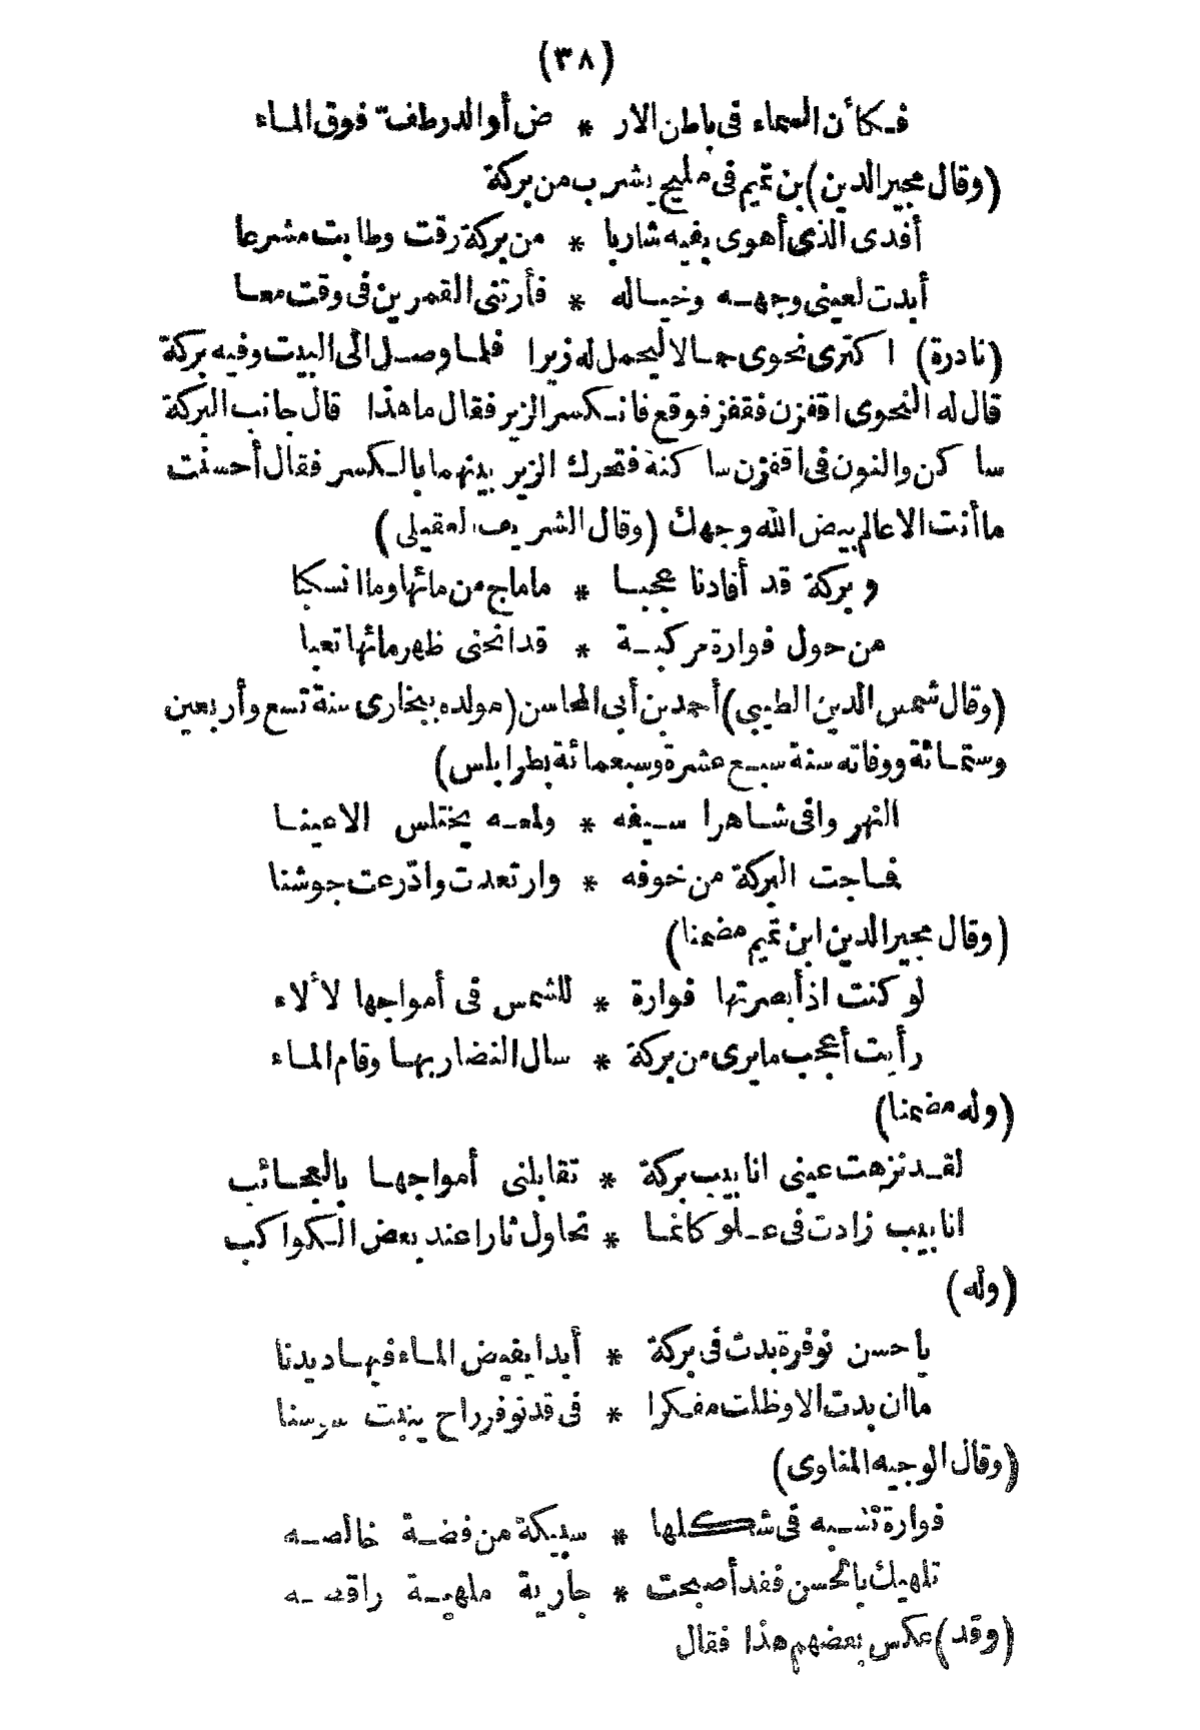 (٣٨)
فكأن السماء فى باطن الار * ض أو الدر طف فوق الماء
(وقال مجير الدين) بن تميم فى مليح يشرب من بركة
أفدى الذى أهوى بفيه شاربا * من بركة رقت وطابت مشرعا
أبدت لعينى وجهه وخياله * فأرتنى القمرين فى وقت معا
(نادرة) اكترى نحوى حمالا ليحمل له زيرا فلما وصل الى البيت وفيه بركة
قال له النحوى اقفزن فقفز فوقع فانكسر الزير فقال ما هذا قال جانب البركة
ساكن والنون فى اقفزن ساكنة فتحرك الزير بينهما بالكسر فقال أحسنت
ما أنت الا عالم بيض الله وجهك (وقال الشريف العقيلى)
وبركة قد أفادنا عجبا * ماماج من مائها وما انسكبا
من حول فوارة مركبة * قد انحنى ظهر مائها تعبا
(وقال شمس الدين الطيبى) أحمد بن أبى المحاسن (مولده ببخارى سنة تسع وأربعين
وستمائة ووفاته سنة سبع عشرة وسبعمائة بطرابلس)
النهر وافى شاهرا سيفه * ولمعه يختلس الاعينا
فماجت البركة من خوفه * وارتعدت وادّرعت جوشنا
(وقال مجير الدين ابن تميم مضمنا)
لو كنت اذ أبصرتها فوارة * للشمس فى أمواجها لألاء
رأيت أعجب ما يرى من بركة * سال النضار بها وقام الماء
(وله مضمنا)
لقد نزهت عينى انابيب بركة * تقابلنى أمواجها بالعجائب
انابيب زادت فى علو كانما * تحاول ثارا عند بعض الكواكب
(وله)
يا حسن نوفرة بدت فى بركة * أبدا يفيض الماء فيها ديدنا
ما ان بدت الا وظلت مفكرا * فى قد نوفر راح ينبت سوسنا
(وقال الوجيه المناوى)
فوارة تشبه فى شكلها * سبيكة من فضة خالصه
تلهيك بالحسن فقد أصبحت * جارية ملهية راقصه
(وقد) عكس بعضهم هذا فقال